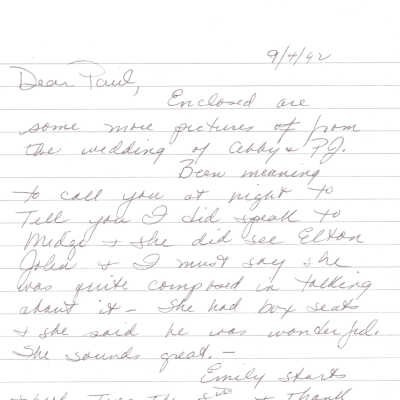 9/4/92
Dear Paul,
Enclosed are
some more pictures of from
the wedding of Abby & P.J.
Been meaning
to call you at night to
Tell you I did speak to
Midge & she did see Elton
John & I must say she
was quite composed in talking
about it – she had box seats
& she said he was wonderful.
She sounds great. –
Emily starts
& thank